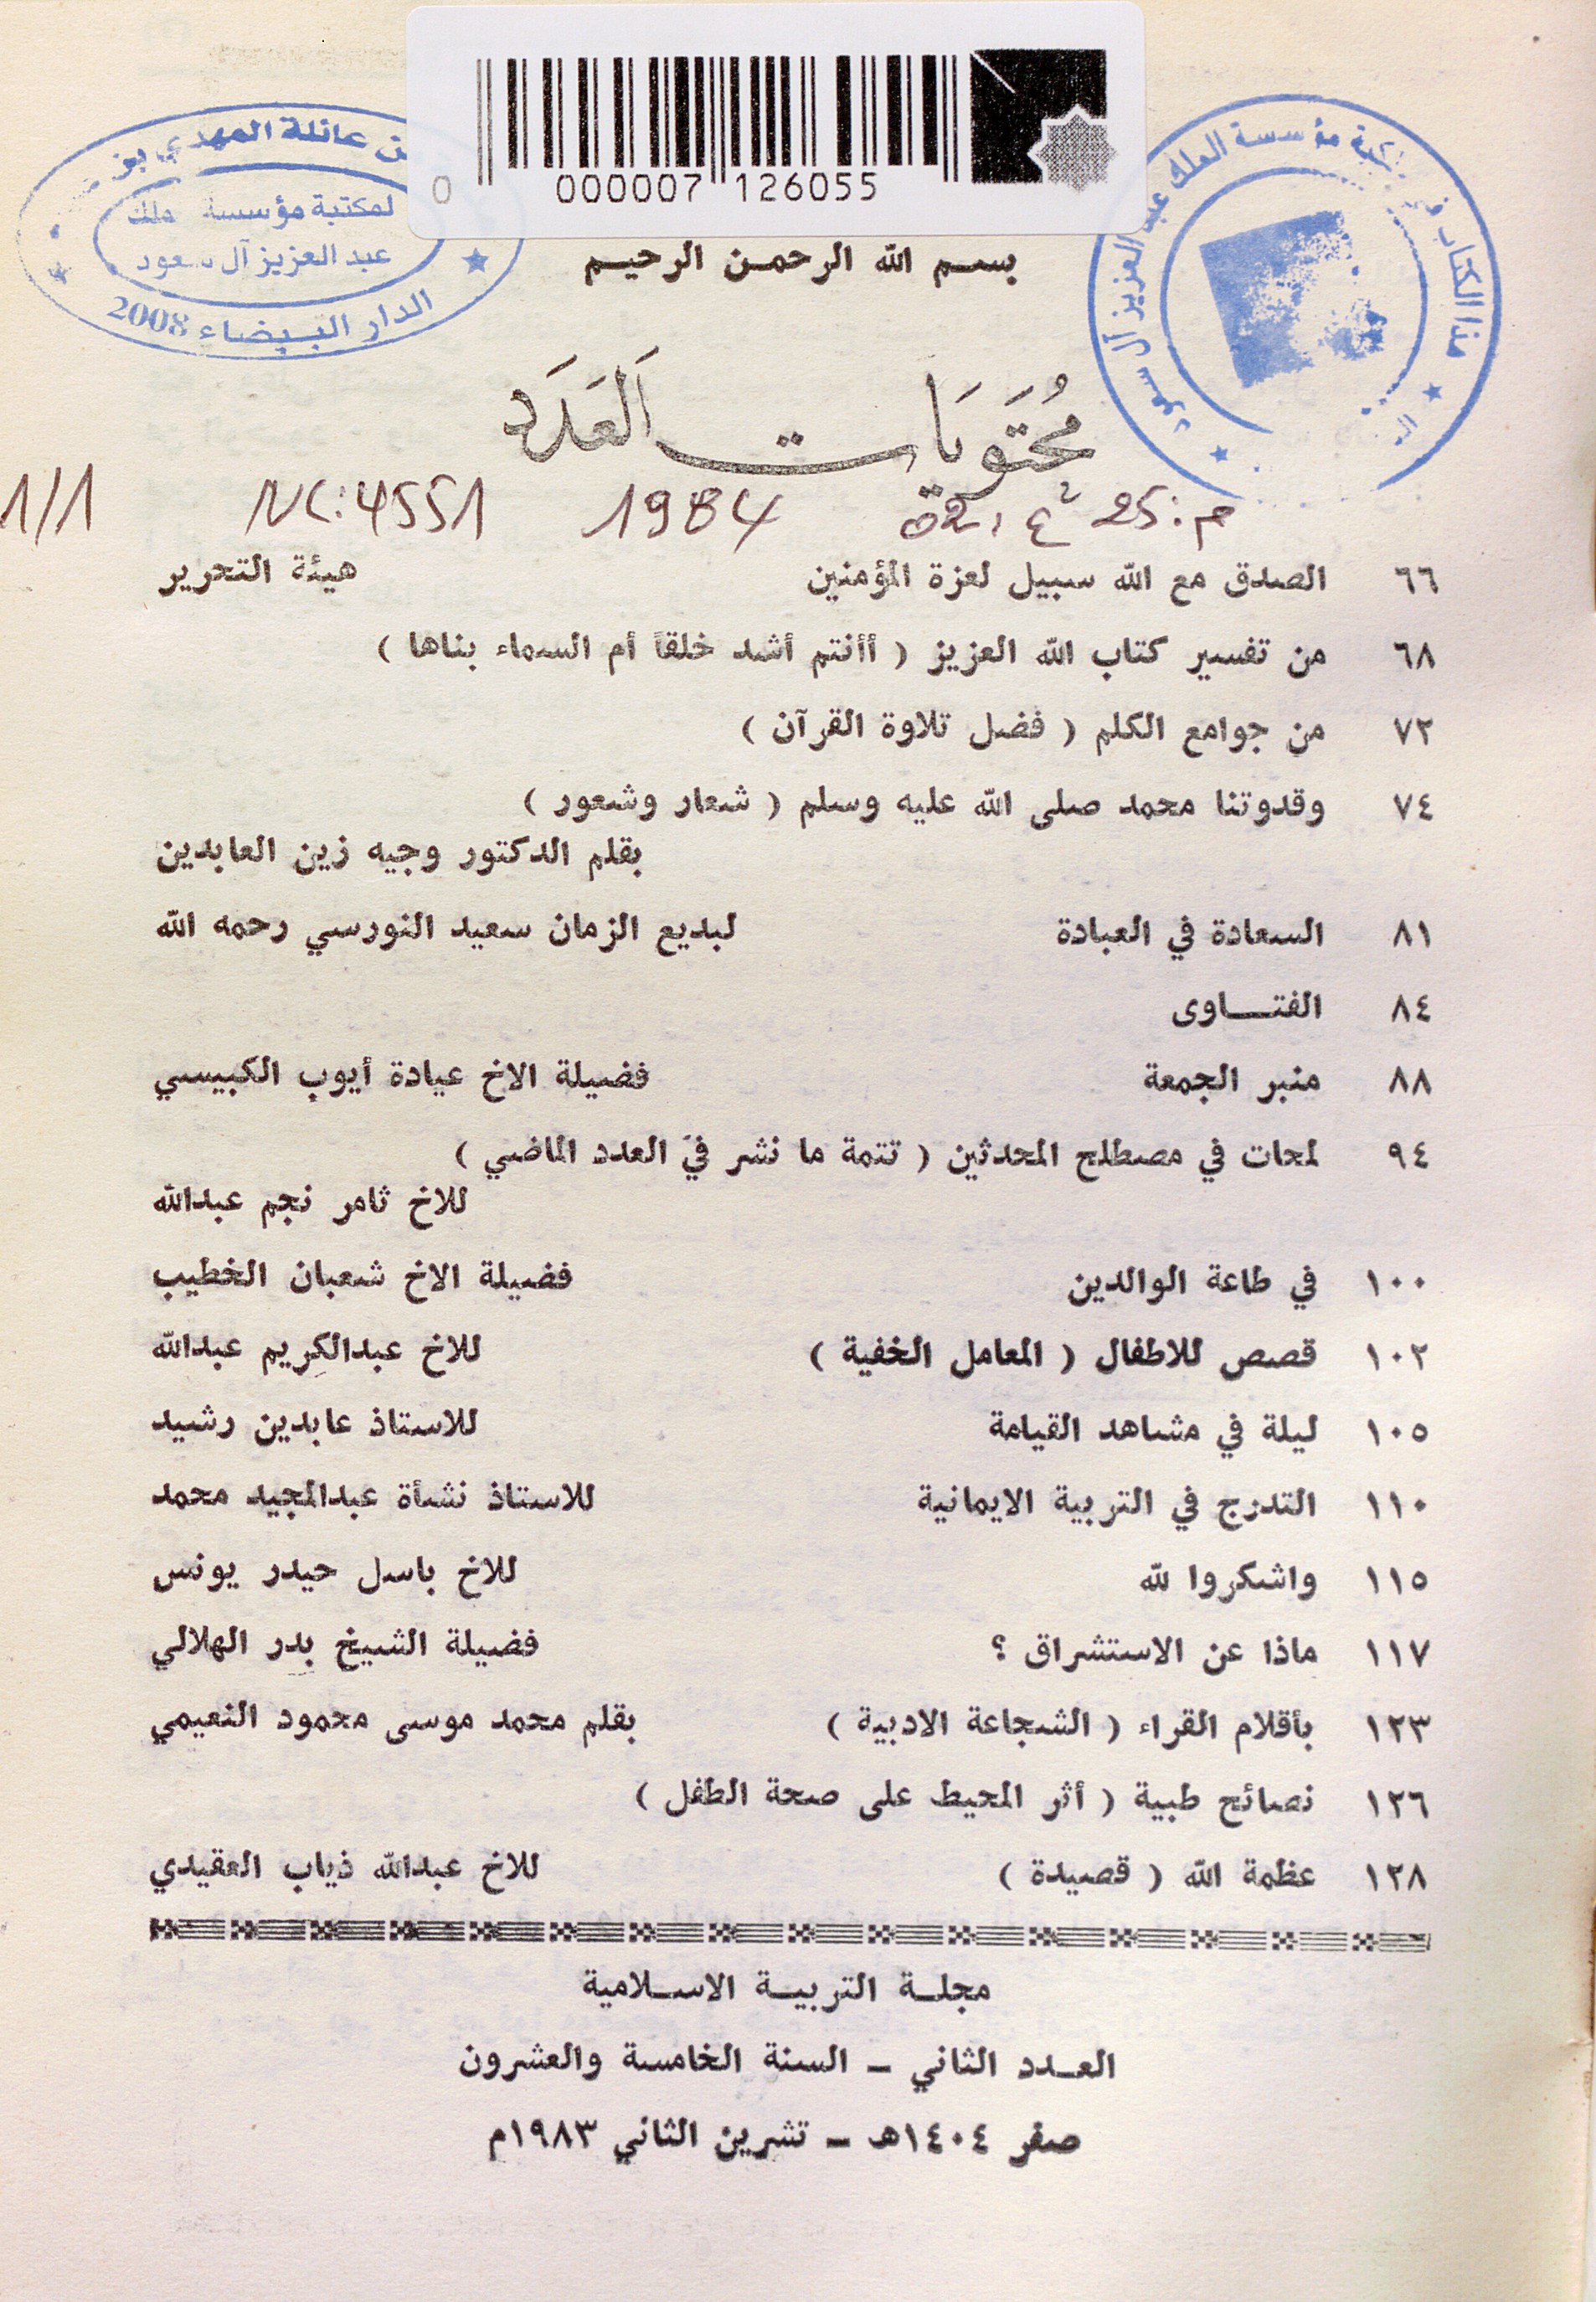 0 000007 126055
عائلة المهدي بن
لمكتبة مؤسسة الملك
عبد العزيز آل سعود
الدار البيضاء 2008
هذا الكتاب مكتبة مؤسسة الملك عبد العزيز آل سعود
بسم الله الرحمن الرحيم
مُحتَوَيَات اَلعَدَد
م: 25 ع 2 1984 NC: 4551 1/1
٦٦ الصدق مع الله سبيل لعزة المؤمنين هيئة التحرير
٦٨ من تفسير كتاب الله العزيز ( أأنتم أشد خلقاً أم السماء بناها )
٧٢ من جوامع الكلم ( فضل تلاوة القرآن )
٧٤ وقدوتنا محمد صلى الله عليه وسلم ( شعار وشعور )
بقلم الدكتور وجيه زين العابدين
٨١ السعادة في العبادة لبديع الزمان سعيد النورسي رحمه الله
٨٤ الفتــاوى
٨٨ منبر الجمعة فضيلة الاخ عيادة أيوب الكبيسي
٩٤ لمحات في مصطلح المحدثين ( تتمة ما نشر في العدد الماضي )
للاخ ثامر نجم عبدالله
١٠٠ في طاعة الوالدين فضيلة الاخ شعبان الخطيب
١٠٢ قصص للاطفال ( المعامل الخفية ) للاخ عبدالكريم عبدالله
١٠٥ ليلة في مشاهد القيامة للاستاذ عابدين رشيد
١١٠ التدرج في التربية الايمانية للاستاذ نشأة عبدالمجيد محمد
١١٥ واشكروا لله للاخ باسل حيدر يونس
١١٧ ماذا عن الاستشراق ؟ فضيلة الشيخ بدر الهلالي
١٢٣ بأقلام القراء ( الشجاعة الادبية ) بقلم محمد موسى محمود النعيمي
١٢٦ نصائح طبية ( أثر المحيط على صحة الطفل )
١٢٨ عظمة الله ( قصيدة ) للاخ عبدالله ذياب العقيدي
مجلــة التربيــة الاســلامية
العــدد الثاني ــ السنة الخامسة والعشرون
صفر ١٤٠٤هـ ــ تشرين الثاني ١٩٨٣م